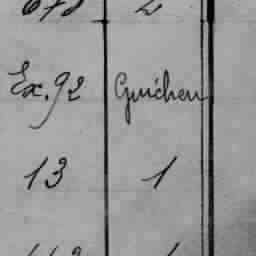 678 2
Ex. 92 Guichen
13 1